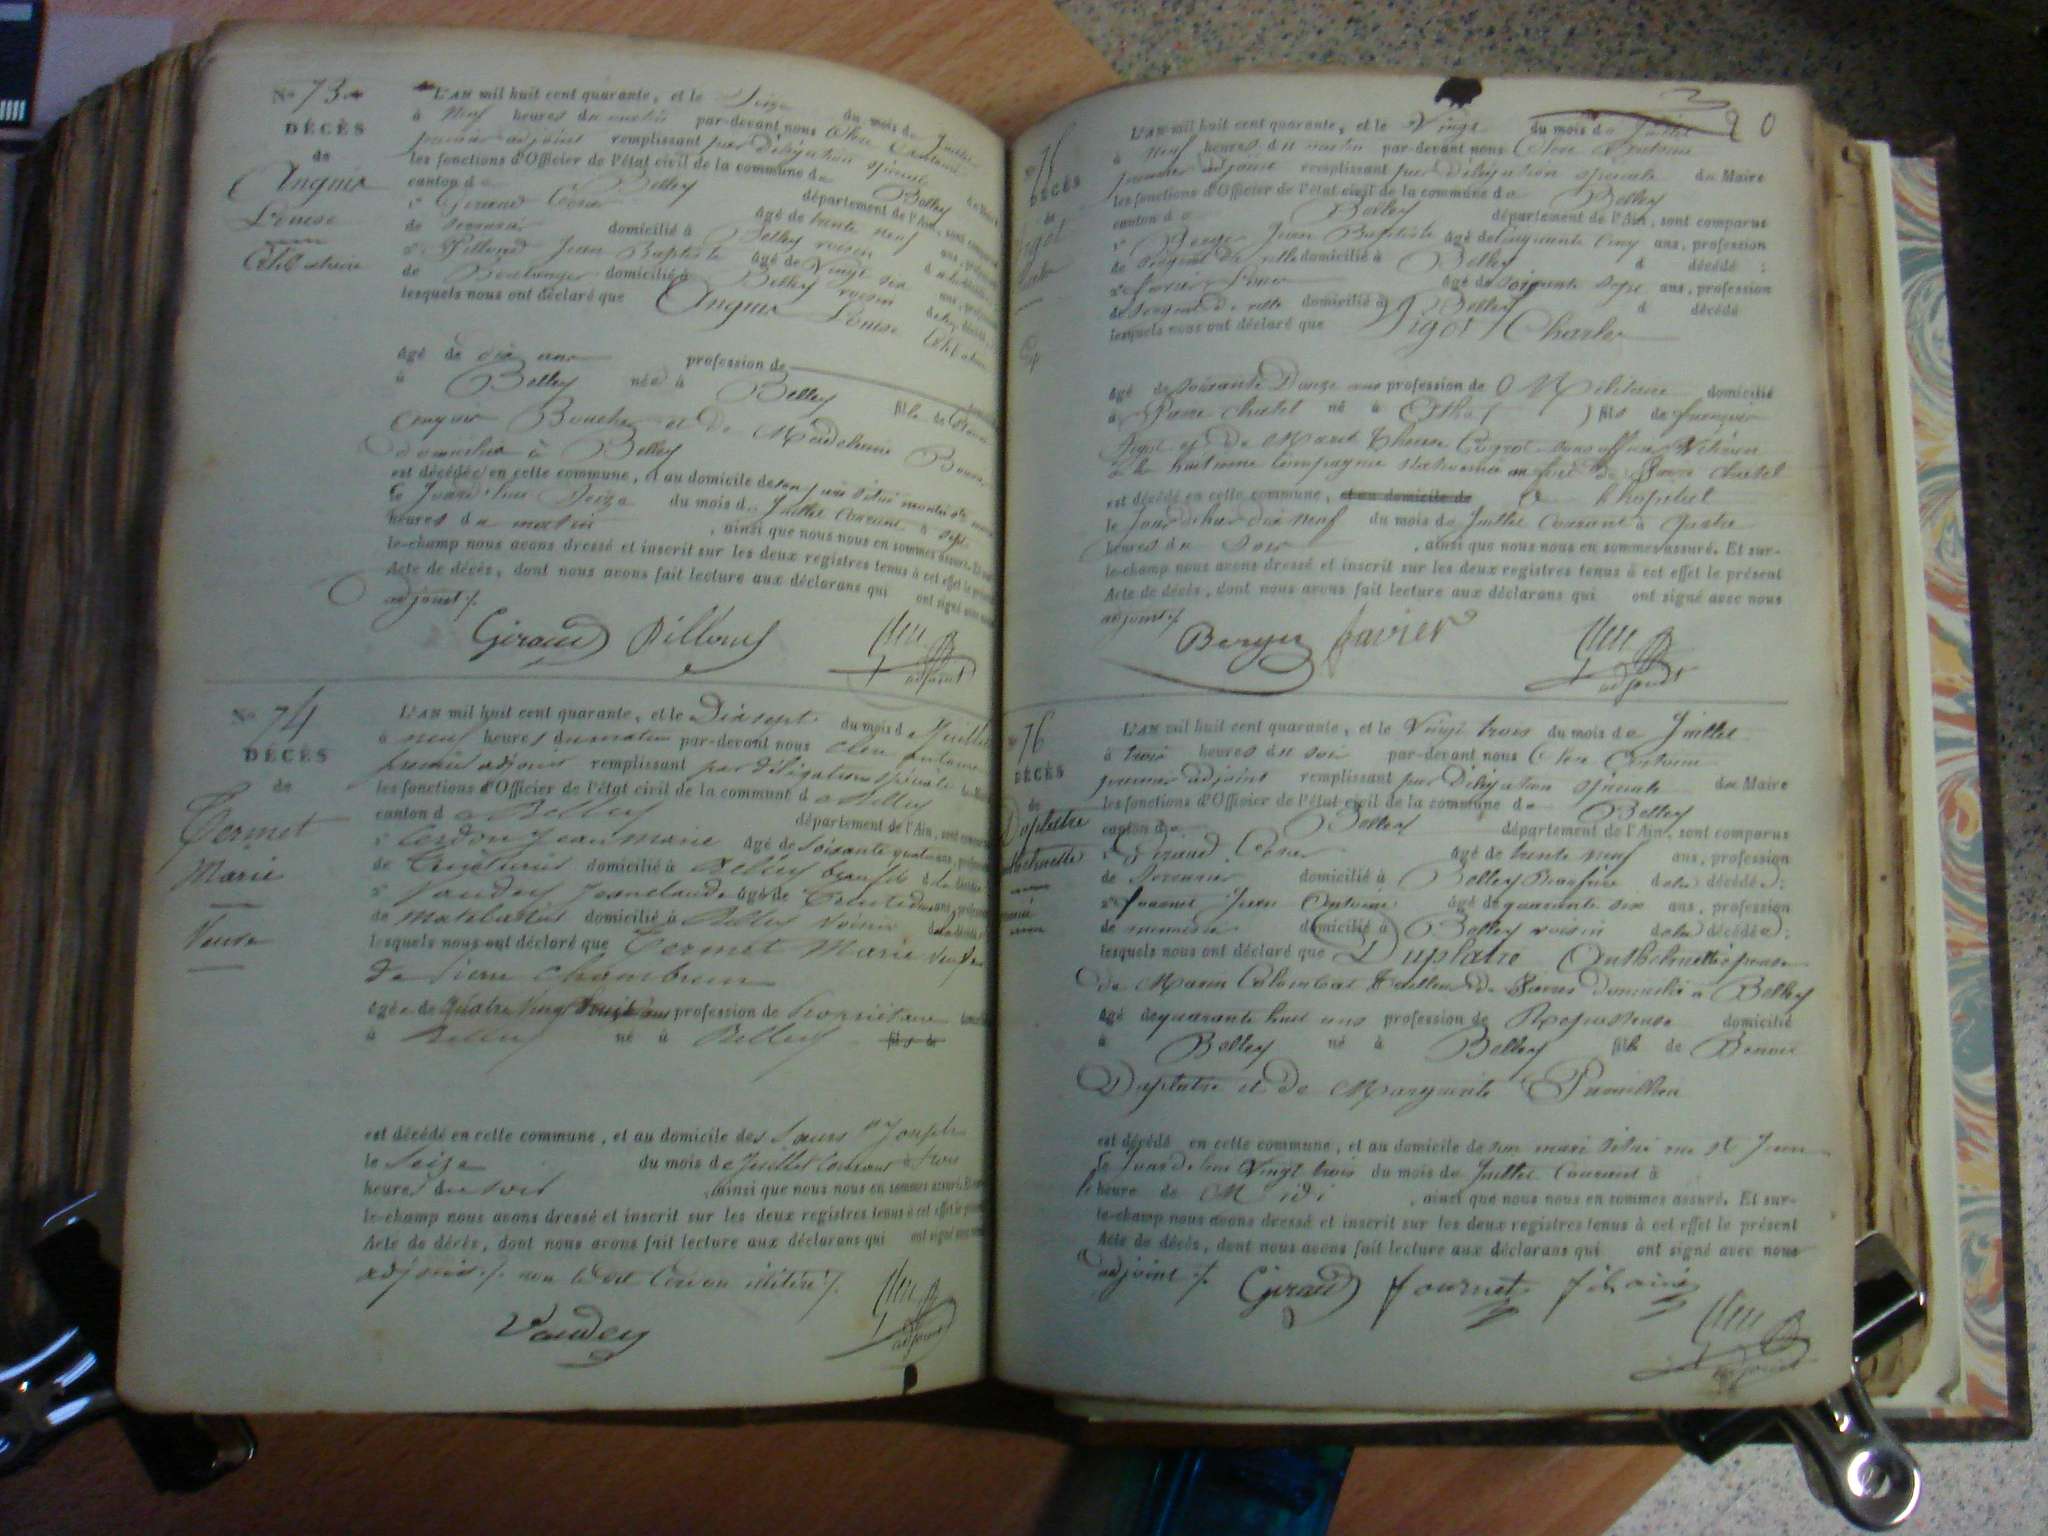 No 73
DÉCÈS
de
Anguis
Louise
Célibataire
L'AN mil huit cent quarante, et le Seize du mois de Juillet
à Neuf heures du matin par-devant nous Clerc Antoine
premier adjoint remplissant par délégation spéciale
les fonctions d'Officier de l'état civil de la commune de Belley
canton de Belley département de l'Ain, sont comparus
1° Giraud César âgé de trente neuf ans, profession
de domicilié à Belley voisin
2° Pilloud Jean Baptiste âgé de Vingt six ans, profession
de Boulanger domicilié à Belley voisin
lesquels nous ont déclaré que Anguis Louise
âgé de dix ans profession de
à Belley née à Belley fille de
et de Madelaine
domiciliés à Belley
est décédée en cette commune, et au domicile de
le Jourd'hui Seize du mois de Juillet courant à sept
heures du matin , ainsi que nous nous en sommes assuré. Et sur-
le-champ nous avons dressé et inscrit sur les deux registres tenus à cet effet le présent
Acte de décès, dont nous avons fait lecture aux déclarans qui ont signé avec nous
adjoint ./.
Giraud Pilloud
adjoint
No 74
DÉCÈS
de
Termet
Marie
Veuve
L'AN mil huit cent quarante, et le Dix sept du mois de Juillet
à neuf heures du matin par-devant nous Clerc antoine
premier adjoint remplissant par délégation spéciale
les fonctions d'Officier de l'état civil de la commune de Belley
canton de Belley département de l'Ain, sont comparus
1° Cordon Jean Marie âgé de soixante quatre ans, profession
de domicilié à Belley
2° Vaudey Jean claude âgé de
de domicilié à Belley Voisin
lesquels nous ont déclaré que Termet Marie Veuve
de Pierre Chambrun
âgée de quatre vingt ans profession de Propriétaire
à Belley né à Belley fils de
est décédé en cette commune, et au domicile des Sœurs St Joseph
le Seize du mois de Juillet Courant à trois
heures du soir , ainsi que nous nous en sommes assuré. Et sur-
le-champ nous avons dressé et inscrit sur les deux registres tenus à cet effet le présent
Acte de décès, dont nous avons fait lecture aux déclarans qui ont signé avec nous
adjoint ./. non ledit Cordon illitéré ./.
Vaudey
adjoint
20
DÉCÈS
de
Pigot
L'AN mil huit cent quarante, et le Vingt du mois de Juillet
à Neuf heures du matin par-devant nous Clerc Antoine
premier adjoint remplissant par Délégation spéciale du Maire
les fonctions d'Officier de l'état civil de la commune de Belley
canton de Belley département de l'Ain, sont comparus
1° Berger Jean Baptiste âgé de Cinquante Cinq ans, profession
de Sergent de ville domicilié à Belley d décédé ;
2° Favier âgé de soixante ans, profession
de Sergent de ville domicilié à Belley d décédé
lesquels nous ont déclaré que Pigot Charles
âgé de soixante Douze ans profession de Militaire domicilié
à Pierre Chatel né à fils de françois
Pigot et de Marie Therese sous officier Vétéran
à la huitieme Compagnie stationnée au fort de Pierre chatel
est décédé en cette commune, et au domicile de à l'hôpital
le Jour d'hier dix neuf du mois de Juillet Courant à Quatre
heures du Soir , ainsi que nous nous en sommes assuré. Et sur-
le-champ nous avons dressé et inscrit sur les deux registres tenus à cet effet le présent
Acte de décès, dont nous avons fait lecture aux déclarans qui ont signé avec nous
adjoint ./.
Berger favier
adjoint
76
DÉCÈS
de
Duplatre
L'AN mil huit cent quarante, et le Vingt trois du mois de Juillet
à trois heures du soir par-devant nous Clerc Antoine
premier adjoint remplissant par Délégation spéciale du Maire
les fonctions d'Officier de l'état civil de la commune de Belley
canton de Belley département de l'Ain, sont comparus
1° Giraud César âgé de trente neuf ans, profession
de domicilié à Belley Beaufrère de la décédée ;
2° fournet Jean Antoine âgé de quarante six ans, profession
de menuisier domicilié à Belley voisin de la décédée ;
lesquels nous ont déclaré que Duplatre Anthelmette épouse
de Marin Colombat Tailleur de Pierres domicilié à Belley
âgé de quarante huit ans profession de Repasseuse domicilié
à Belley né à Belley fille de Benoit
Duplatre et de Marguerite Pavaillon
est décédé en cette commune, et au domicile de son mari situé rue St Jean
le Jour de hui Vingt trois du mois de Juillet Courant à
l'heure de Midi , ainsi que nous nous en sommes assuré. Et sur-
le-champ nous avons dressé et inscrit sur les deux registres tenus à cet effet le présent
Acte de décès, dont nous avons fait lecture aux déclarans qui ont signé avec nous
adjoint ./. Giraud fournet
adjoint